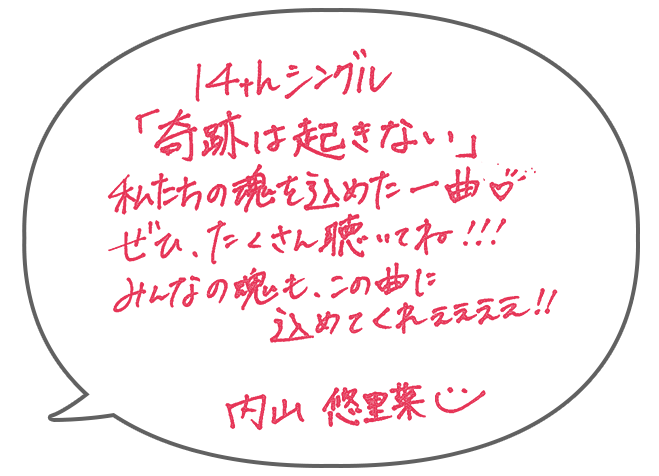 14thシングル
「奇跡は起きない」
私たちの魂を込めた一曲♡
ぜひ、たくさん聴いてね!!!
みんなの魂も、この曲に
込めてくれェェェェ!!
内山 悠里菜